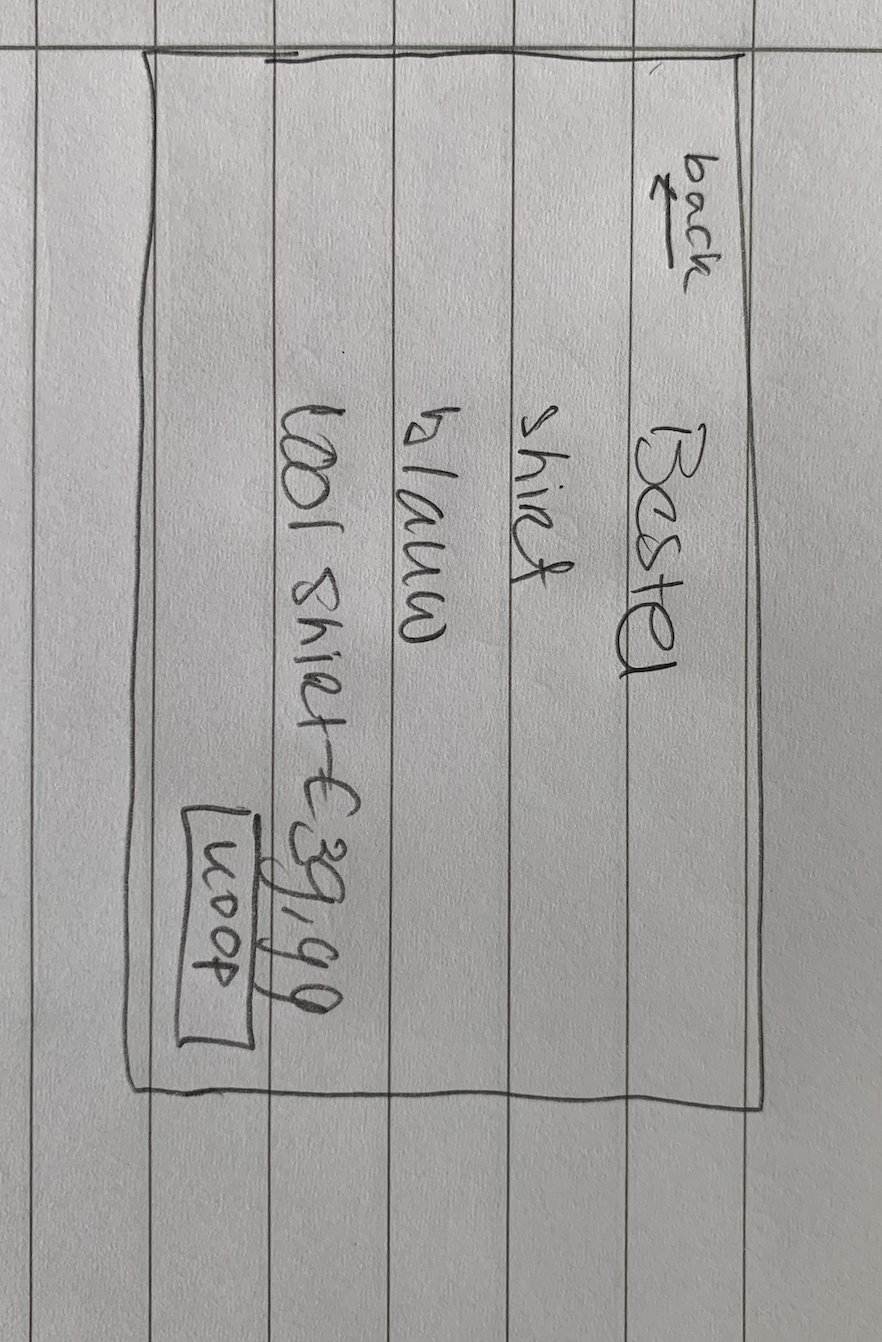 back
←
Bestel
shirt
blauw
cool shirt - € 39,99
koop